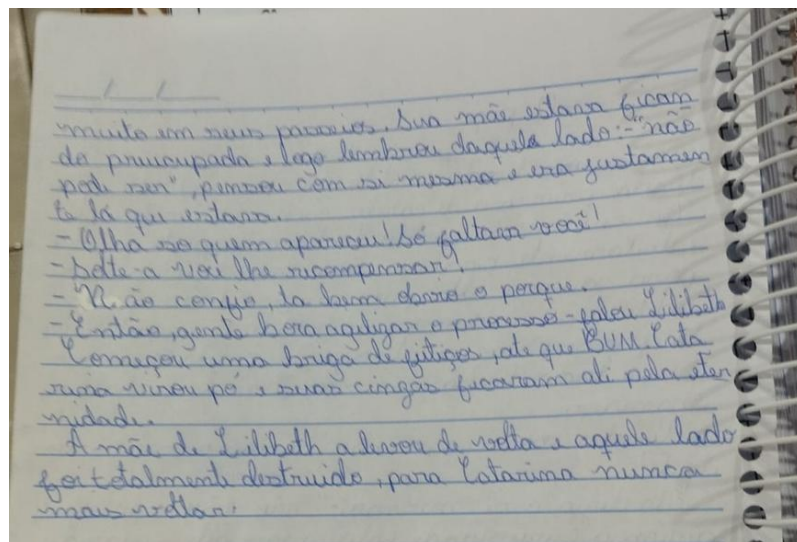 muito em seus passeios. Sua mãe estava fican
do preucupada e logo lembrou daquele lado:-"não
pode ser", pensou com si mesma e era justamen
te lá que estava.
- Olha so quem apareceu! Só faltava você!
- Solte-a vou lhe recompensar!
- Não confio, ta bem obvio o porque.
- Então, gente bora agilizar o processo - falou Lilibeth
Começou uma briga de feitiços, ate que BUM Cata
rina virou pó e suas cinzas ficaram ali pela eter
nidade.
A mãe de Lilibeth a levou de volta e aquele lado
foi totalmente destruido, para Catarina nunca
mais voltar.